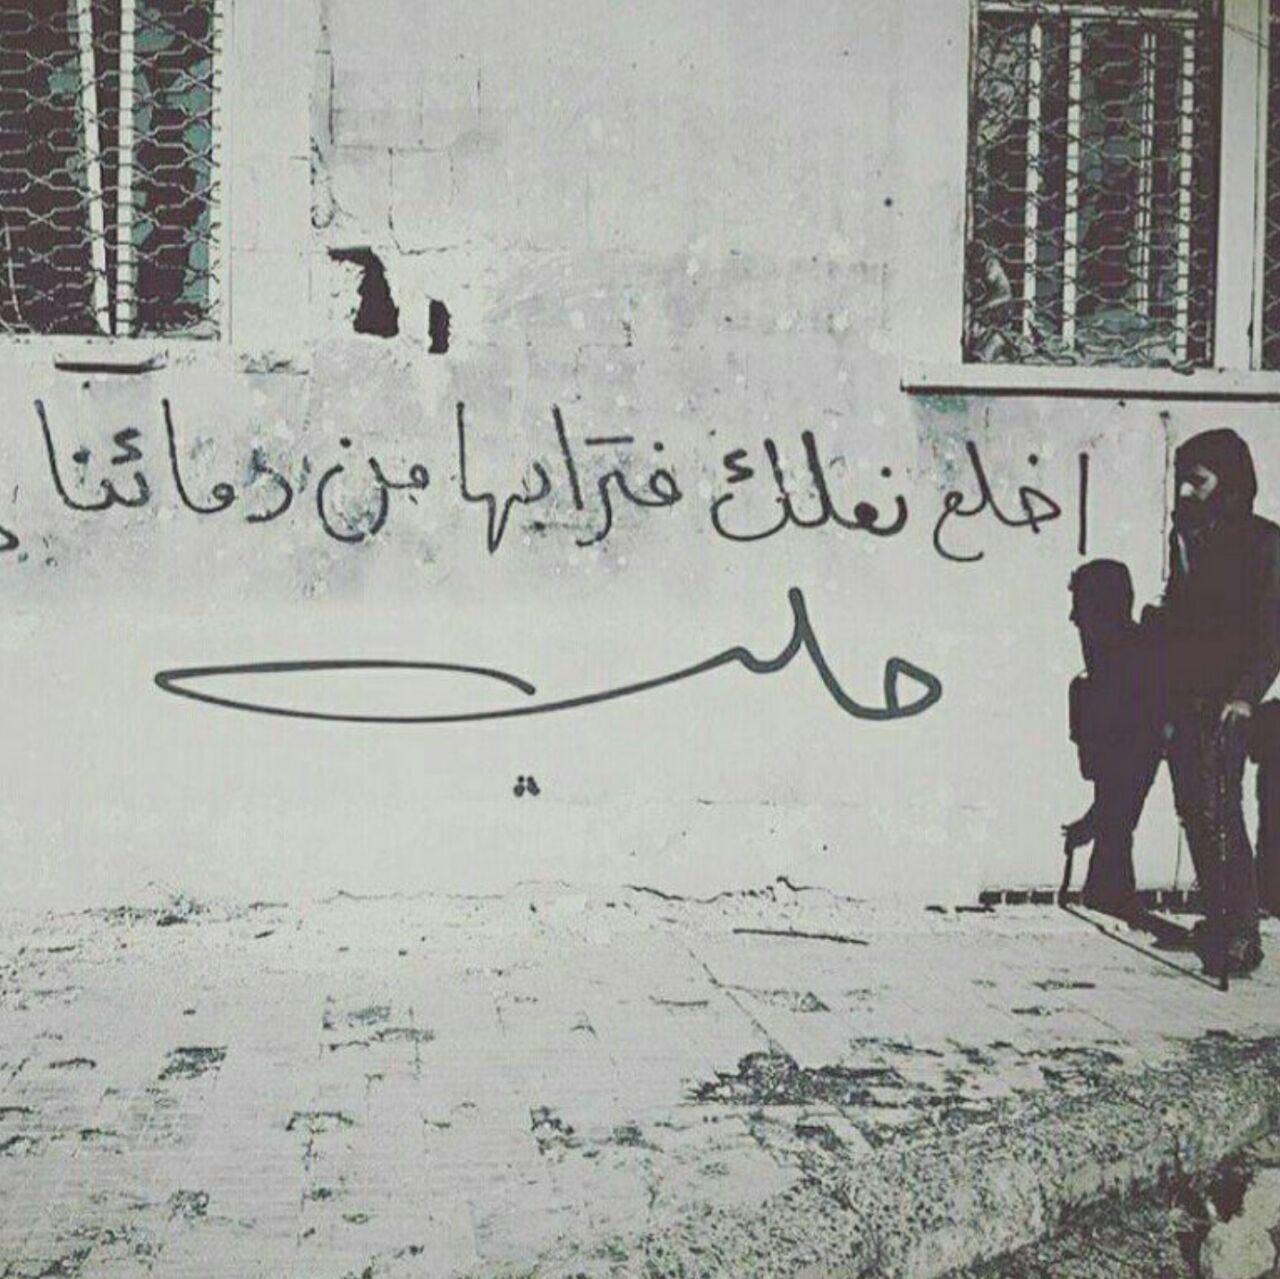 اخلع نعلك فترابها من دمائنا
حلب